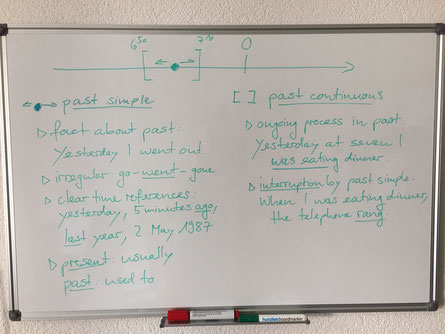 6⁵⁰ 7¹⁰ 0
past simple
▷ fact about past:
Yesterday I went out.
▷ irregular: go - went - gone
▷ clear time references:
yesterday, 5 minutes ago,
last year, 2 May 1987
▷ present: usually
past: used to
[ ] past continuous
▷ ongoing process in past:
Yesterday at seven I
was eating dinner.
▷ interruption by past simple:
When I was eating dinner,
the telephone rang.
boardmarker